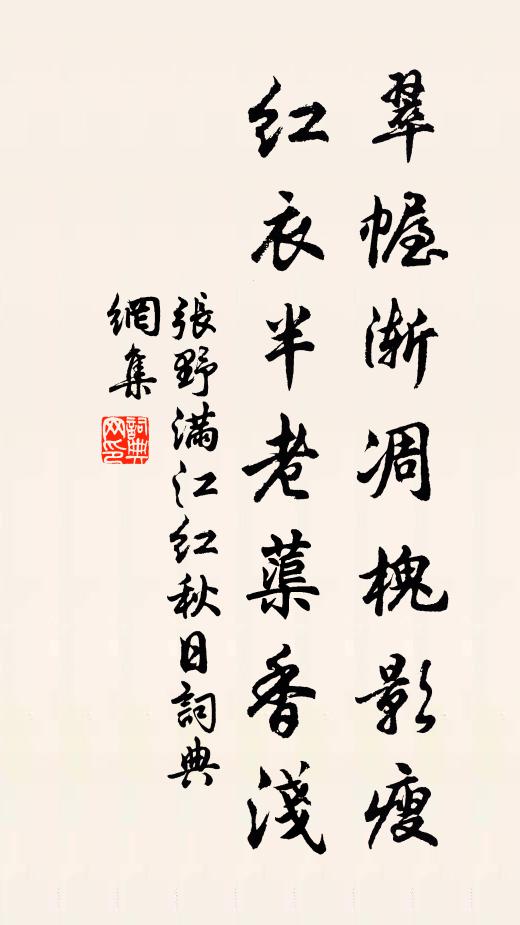 翠幄渐凋槐影瘦
红衣半老蕖香淺
張野滿江红秋日詞典
網集
詞典
网印